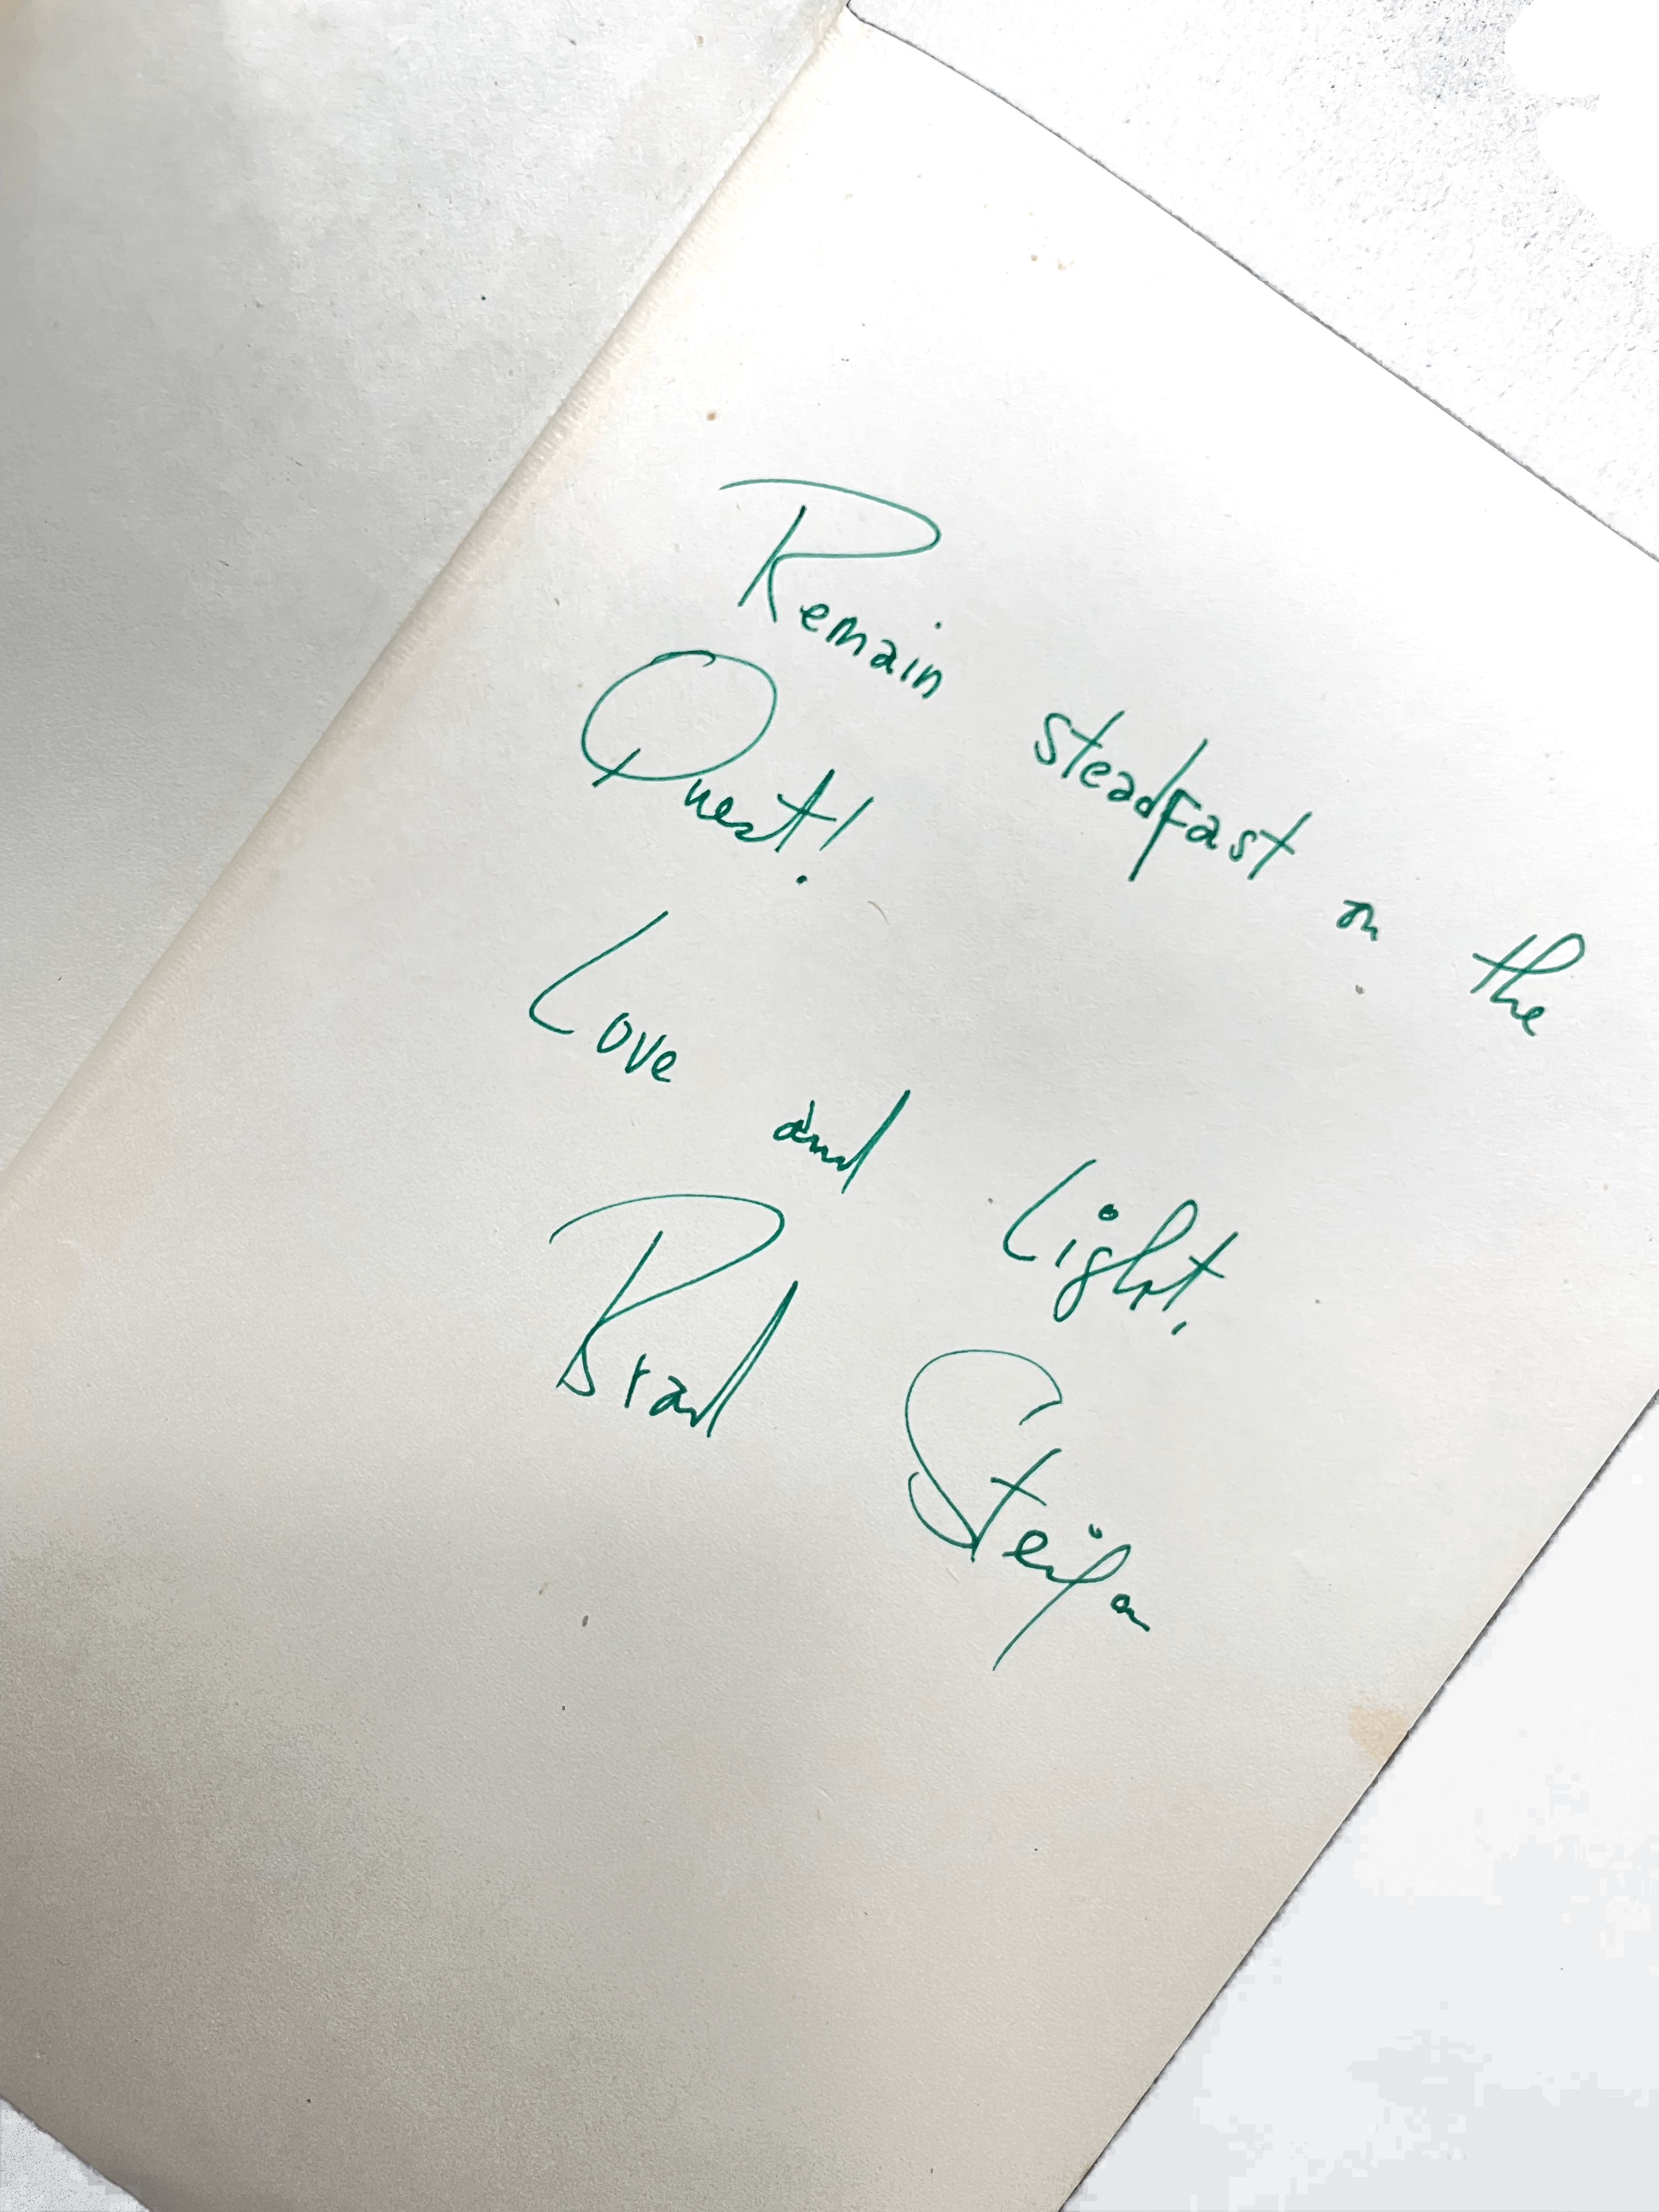 Remain steadfast on the
Quest!
Love and Light,
Brad Steiger